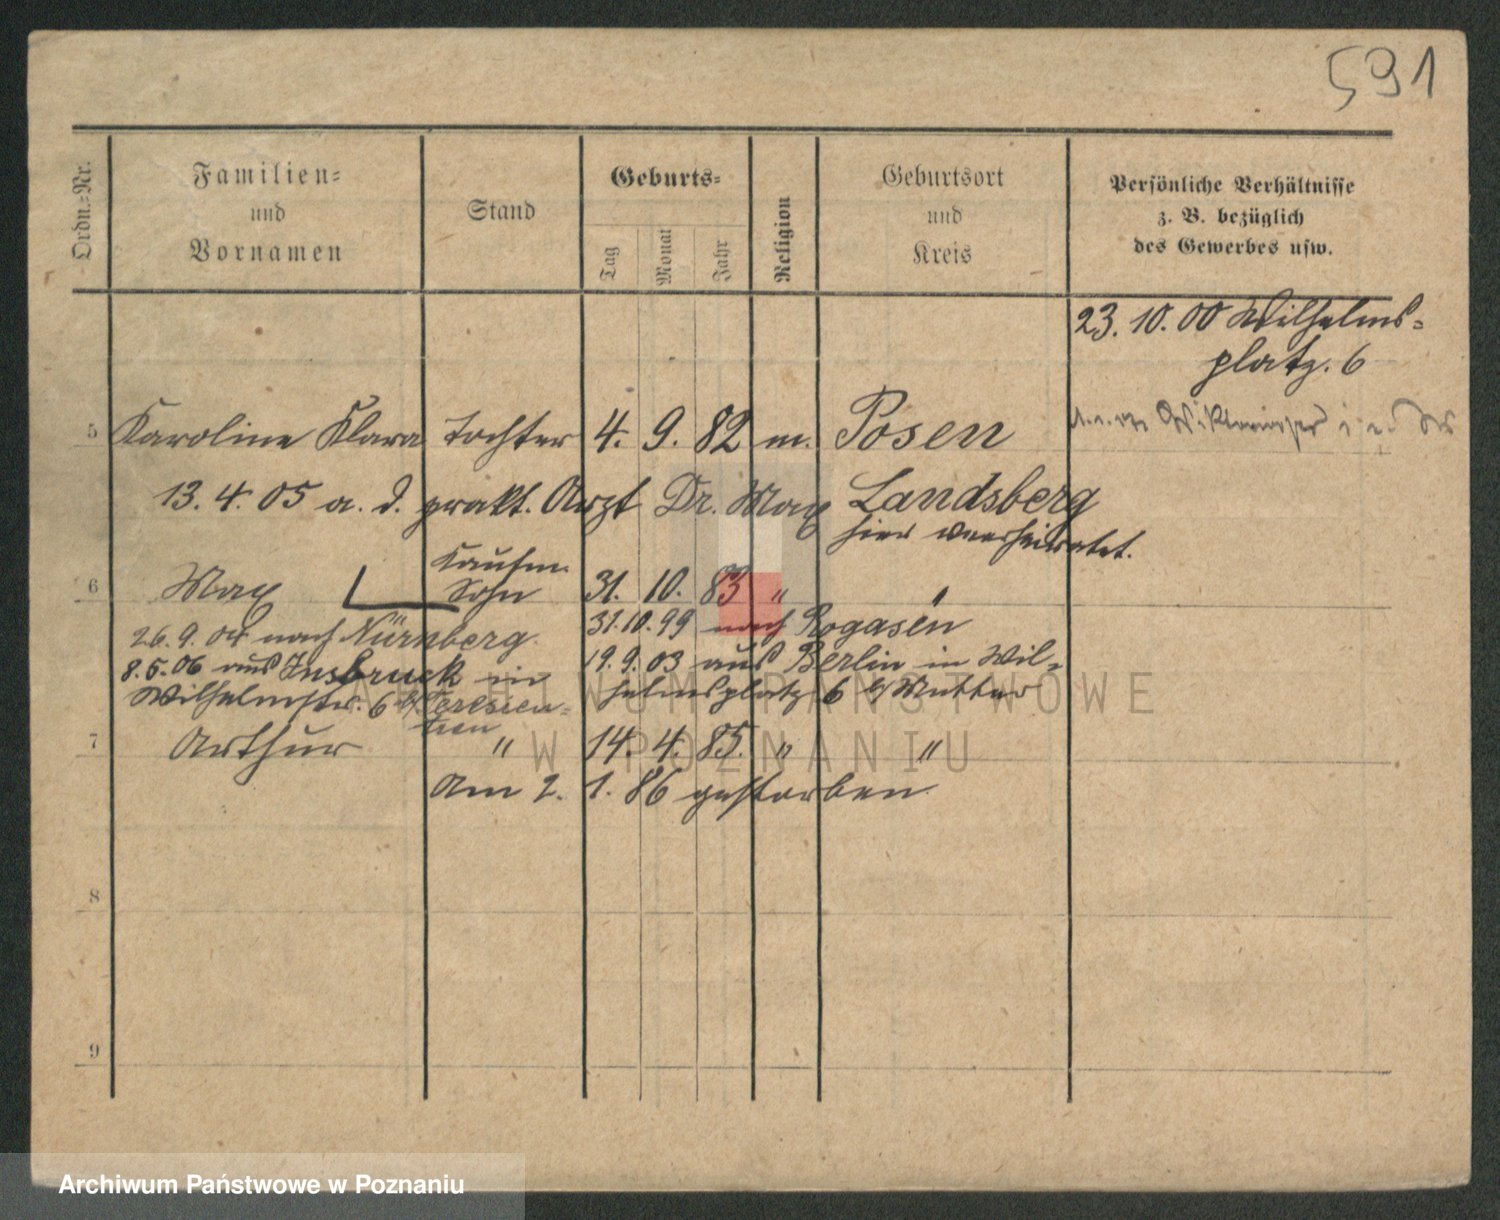 591
Ordn.=Nr.
Familien=
und
Vornamen
Stand
Geburts=
Tag
Monat
Jahr
Religion
Geburtsort
und
Kreis
Persönliche Verhältnisse
z. B. bezüglich
des Gewerbes usw.
23. 10. 00 Wilhelms-
platz. 6
5 Karoline Klara Tochter 4. 9. 82 m. Posen
13. 4. 05 a. d. prakt. Arzt Dr. Max Landsberg
hier verheiratet.
Kaufm.
6 Max Sohn 31. 10. 83 " "
26. 9. 04 nach Nürnberg.
8. 5. 06 aus Insbruck in
Wilhelmstr. 6 b/
31. 10. 99 nach Rogasen
19. 9. 03 aus Berlin in Wil-
helmsplatz 6 b/ Mutter
7 Arthur " 14. 4. 85. " "
Am 2. 1. 86 gestorben.
8
9
ARCHIWUM PAŃSTWOWE
W POZNANIU
Archiwum Państwowe w Poznaniu